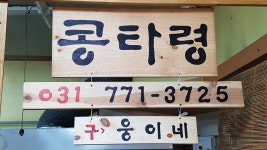 콩타령
031 771-3725
구, 웅이네